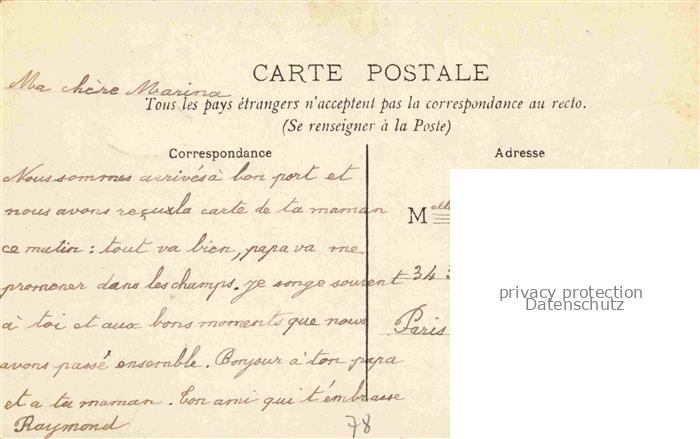 CARTE POSTALE
Ma chère Marina
Tous les pays étrangers n'acceptent pas la correspondance au recto.
(Se renseigner à la Poste)
Correspondance
Nous sommes arrivés à bon port et
nous avons reçu la carte de ta maman
ce matin : tout va bien, papa va me
promener dans les champs. Je songe souvent
à toi et aux bons moments que nous
avons passé ensemble. Bonjour à ton papa
et a ta maman. Ton ami qui t'embrasse
Raymond
78
Adresse
Melle
34
Paris
privacy protection
Datenschutz